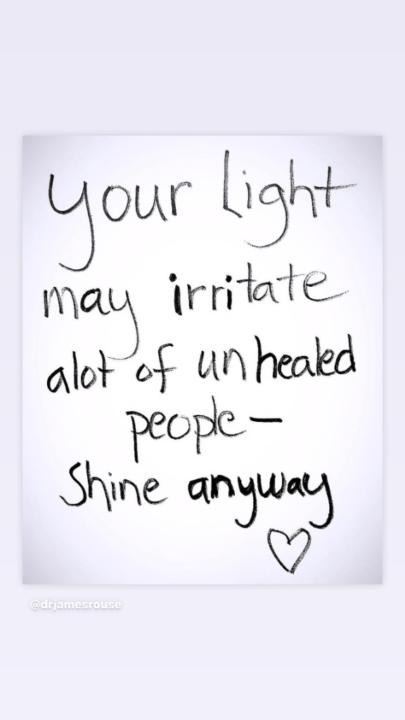 your Light
may irritate
alot of unhealed
people—
Shine anyway
@drjamesrouse